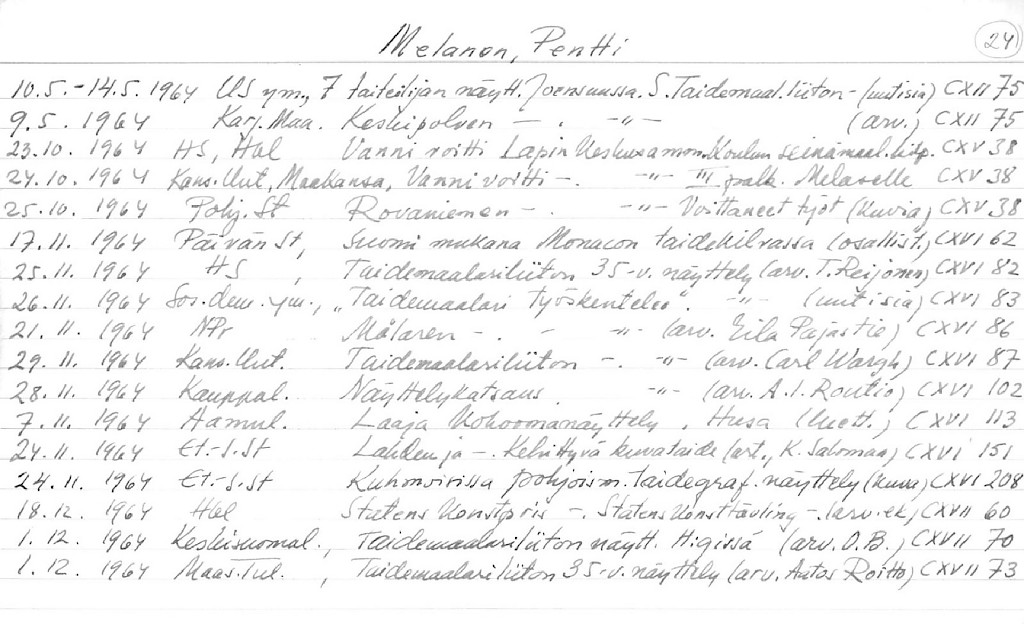 Melanen, Pentti 24
10.5.-14.5. 1964 US ym., 7 taiteilijan näytt. Joensuussa. S. Taidemaal.liiton - (uutisia) CXII 75
9.5. 1964 Karj. Maa. Keskipolven - . -"- (arv.) CXII 75
23.10. 1964 HS, Hbl Vanni voitti Lapin Keskusamm.Koulun seinämaal.kilp. CXV 38
24.10. 1964 Kans.Uut, Maakansa, Vanni voitti -. -"- III palk. Melaselle CXV 38
25.10. 1964 Pohj. St Rovaniemen - . -"- Voittaneet työt (kuvia) CXV 38
17.11. 1964 Päivän St, Suomi mukana Monacon taidekilvassa (osallist.) CXVI 62
25.11. 1964 HS , Taidemaalariliiton 35-v. näyttely (arv. T. Reijonen) CXVI 82
26.11. 1964 Sos.dem. ym., "Taidemaalari työskentelee". -"- (uutisia) CXVI 83
21.11. 1964 NPr Målaren - . - -"- (arv. Eila Pajastie) CXVI 86
29.11. 1964 Kans.Uut. Taidemaalariliiton -. -"- (arv. Carl Wargh) CXVI 87
28.11. 1964 Kauppal. Näyttelykatsaus -"- (arv. A.I. Routio) CXVI 102
7.11. 1964 Hämul. Laaja kokoomanäyttely , (luett.) CXVI 113
24.11. 1964 Et.-S.St Lahden ja -. Kehittyvä kuvataide (art., K. Salomaa) CXVI 151
24.11. 1964 Et.-S.St Kuhonsirissa pohjoism. taidegraf. näyttely (kuva) CXVI 208
18.12. 1964 Hbl Statens Konstpris -. Statens konsttävling -. (arv. ek) CXVII 60
1.12. 1964 Keskisuomal., Taidemaalariliiton näytt. H:gissä (arv. O.B.) CXVII 70
1.12. 1964 Maas.Tul. , Taidemaalariliiton 35-v. näyttely (arv. Aatos Roitto) CXVII 73